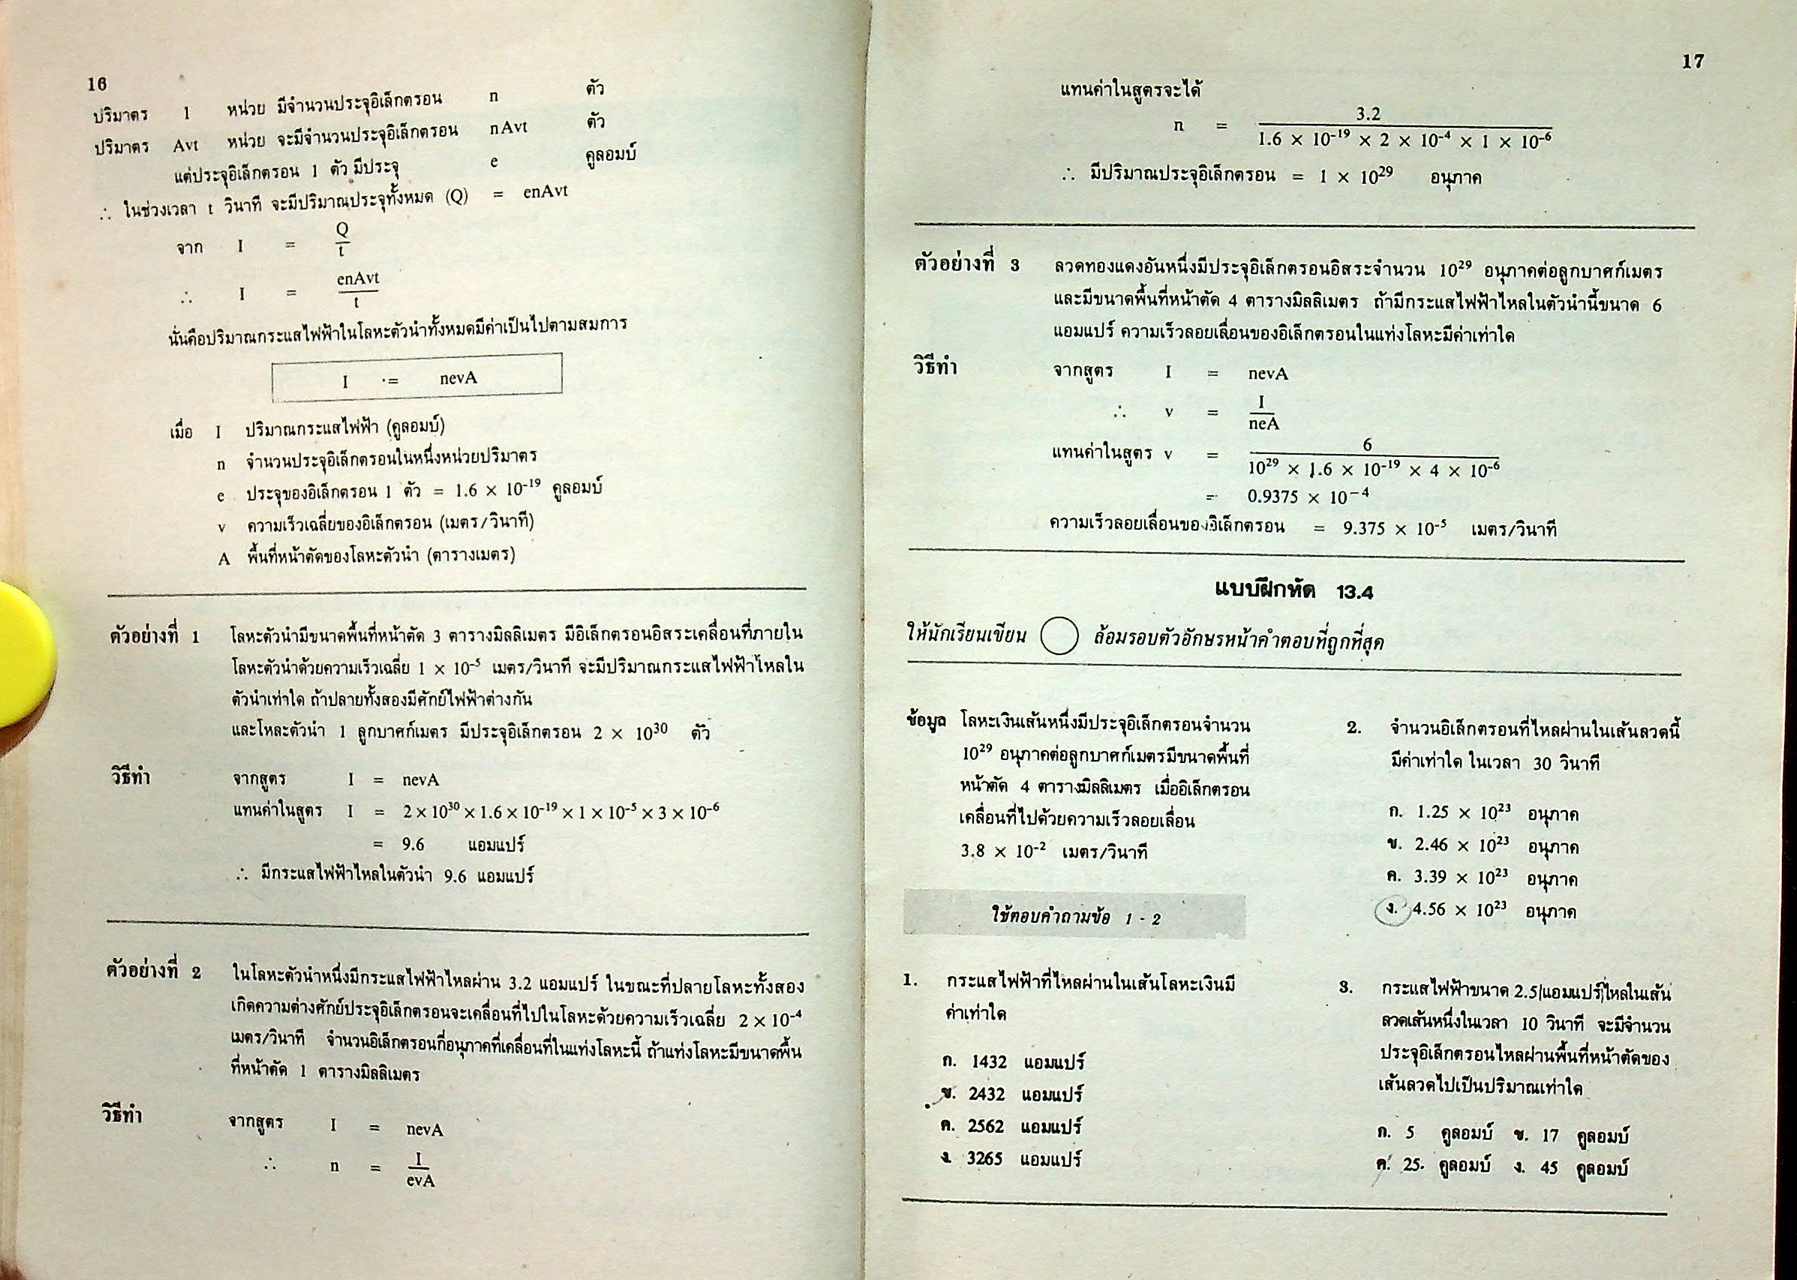 16
ปริมาตร 1 หน่วย มีจำนวนประจุอิเล็กตรอน n ตัว
ปริมาตร Avt หน่วย จะมีจำนวนประจุอิเล็กตรอน nAvt ตัว
แต่ประจุอิเล็กตรอน 1 ตัว มีประจุ e คูลอมบ์
∴ ในช่วงเวลา t วินาที จะมีปริมาณประจุทั้งหมด (Q) = enAvt
จาก I = Q/t
∴ I = enAvt/t
นั่นคือปริมาณกระแสไฟฟ้าในโลหะตัวนำทั้งหมดมีค่าเป็นไปตามสมการ
I = nevA
เมื่อ I ปริมาณกระแสไฟฟ้า (คูลอมบ์)
n จำนวนประจุอิเล็กตรอนในหนึ่งหน่วยปริมาตร
e ประจุของอิเล็กตรอน 1 ตัว = 1.6 × 10⁻¹⁹ คูลอมบ์
v ความเร็วเฉลี่ยของอิเล็กตรอน (เมตร/วินาที)
A พื้นที่หน้าตัดของโลหะตัวนำ (ตารางเมตร)
ตัวอย่างที่ 1 โลหะตัวนำมีขนาดพื้นที่หน้าตัด 3 ตารางมิลลิเมตร มีอิเล็กตรอนอิสระเคลื่อนที่ภายใน
โลหะตัวนำด้วยความเร็วเฉลี่ย 1 × 10⁻⁵ เมตร/วินาที จะมีปริมาณกระแสไฟฟ้าไหลใน
ตัวนำเท่าใด ถ้าปลายทั้งสองมีศักย์ไฟฟ้าต่างกัน
และโหละตัวนำ 1 ลูกบาศก์เมตร มีประจุอิเล็กตรอน 2 × 10³⁰ ตัว
วิธีทำ จากสูตร I = nevA
แทนค่าในสูตร I = 2 × 10³⁰ × 1.6 × 10⁻¹⁹ × 1 × 10⁻⁵ × 3 × 10⁻⁶
= 9.6 แอมแปร์
∴ มีกระแสไฟฟ้าไหลในตัวนำ 9.6 แอมแปร์
ตัวอย่างที่ 2 ในโลหะตัวนำหนึ่งมีกระแสไฟฟ้าไหลผ่าน 3.2 แอมแปร์ ในขณะที่ปลายโลหะทั้งสอง
เกิดความต่างศักย์ประจุอิเล็กตรอนจะเคลื่อนที่ไปในโลหะด้วยความเร็วเฉลี่ย 2 × 10⁻⁴
เมตร/วินาที จำนวนอิเล็กตรอนกี่อนุภาคที่เคลื่อนที่ในแท่งโลหะนี้ ถ้าแท่งโลหะมีขนาดพื้น
ที่หน้าตัด 1 ตารางมิลลิเมตร
วิธีทำ จากสูตร I = nevA
∴ n = I/evA
17
แทนค่าในสูตรจะได้
n = 3.2/1.6 × 10⁻¹⁹ × 2 × 10⁻⁴ × 1 × 10⁻⁶
∴ มีปริมาณประจุอิเล็กตรอน = 1 × 10²⁹ อนุภาค
ตัวอย่างที่ 3 ลวดทองแดงอันหนึ่งมีประจุอิเล็กตรอนอิสระจำนวน 10²⁹ อนุภาคต่อลูกบาศก์เมตร
และมีขนาดพื้นที่หน้าตัด 4 ตารางมิลลิเมตร ถ้ามีกระแสไฟฟ้าไหลในตัวนำนี้ขนาด 6
แอมแปร์ ความเร็วลอยเลื่อนของอิเล็กตรอนในแท่งโลหะมีค่าเท่าใด
วิธีทำ จากสูตร I = nevA
∴ v = I/neA
แทนค่าในสูตร v = 6/10²⁹ × 1.6 × 10⁻¹⁹ × 4 × 10⁻⁶
= 0.9375 × 10⁻⁴
ความเร็วลอยเลื่อนของอิเล็กตรอน = 9.375 × 10⁻⁵ เมตร/วินาที
แบบฝึกหัด 13.4
ให้นักเรียนเขียน ◯ ล้อมรอบตัวอักษรหน้าคำตอบที่ถูกที่สุด
ข้อมูล โลหะเงินเส้นหนึ่งมีประจุอิเล็กตรอนจำนวน
10²⁹ อนุภาคต่อลูกบาศก์เมตรมีขนาดพื้นที่
หน้าตัด 4 ตารางมิลลิเมตร เมื่ออิเล็กตรอน
เคลื่อนที่ไปด้วยความเร็วลอยเลื่อน
3.8 × 10⁻² เมตร/วินาที
ใช้ตอบคำถามข้อ 1 - 2
1. กระแสไฟฟ้าที่ไหลผ่านในเส้นโลหะเงินมี
ค่าเท่าใด
ก. 1432 แอมแปร์
ข. 2432 แอมแปร์
ค. 2562 แอมแปร์
ง. 3265 แอมแปร์
2. จำนวนอิเล็กตรอนที่ไหลผ่านในเส้นลวดนี้
มีค่าเท่าใด ในเวลา 30 วินาที
ก. 1.25 × 10²³ อนุภาค
ข. 2.46 × 10²³ อนุภาค
ค. 3.39 × 10²³ อนุภาค
ง. 4.56 × 10²³ อนุภาค
3. กระแสไฟฟ้าขนาด 2.5 แอมแปร์ไหลในเส้น
ลวดเส้นหนึ่งในเวลา 10 วินาที จะมีจำนวน
ประจุอิเล็กตรอนไหลผ่านพื้นที่หน้าตัดของ
เส้นลวดไปเป็นปริมาณเท่าใด
ก. 5 คูลอมบ์ ข. 17 คูลอมบ์
ค. 25 คูลอมบ์ ง. 45 คูลอมบ์